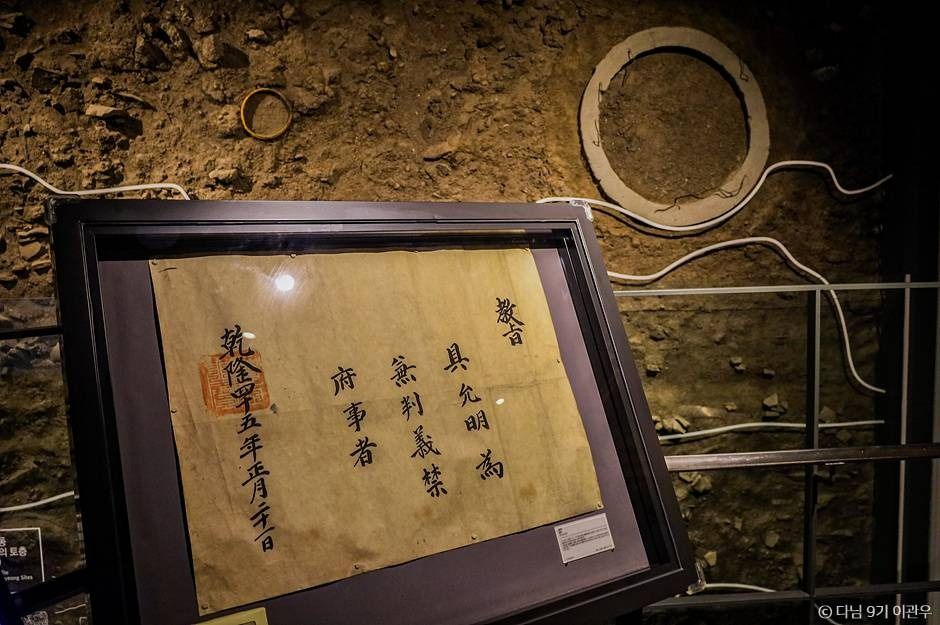 敎旨
具允明為
兼判義禁
府事者
乾隆四十五年正月二十一日
의 토층
eong Sites
© 다님 9기 이관우